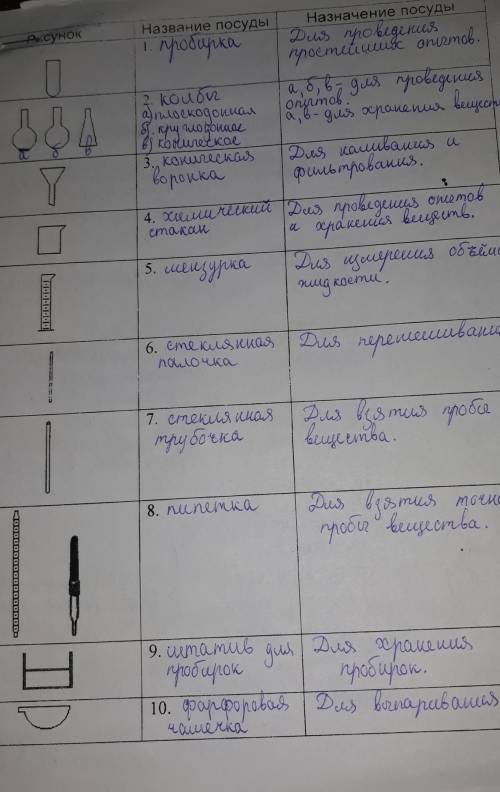 Рисунок Название посуды Назначение посуды
1. пробирка Для проведения
простейших опытов.
2. колбы
а) плоскодонная
б) круглодонное
в) коническое
а, б, в - для проведения
опытов.
а, в - для хранения веществ
а б в
3. коническая
воронка
Для наливания и
фильтрования.
4. химический
стакан
Для проведения опытов
и хранения веществ.
5. мензурка
Для измерения объём
жидкости.
6. стеклянная
палочка
Для перемешивания
7. стеклянная
трубочка
Для взятия пробы
вещества.
8. пипетка
Для взятия точно
пробы вещества.
9. штатив для
пробирок
Для хранения
пробирок.
10. фарфоровая
чашечка
Для выпаривания